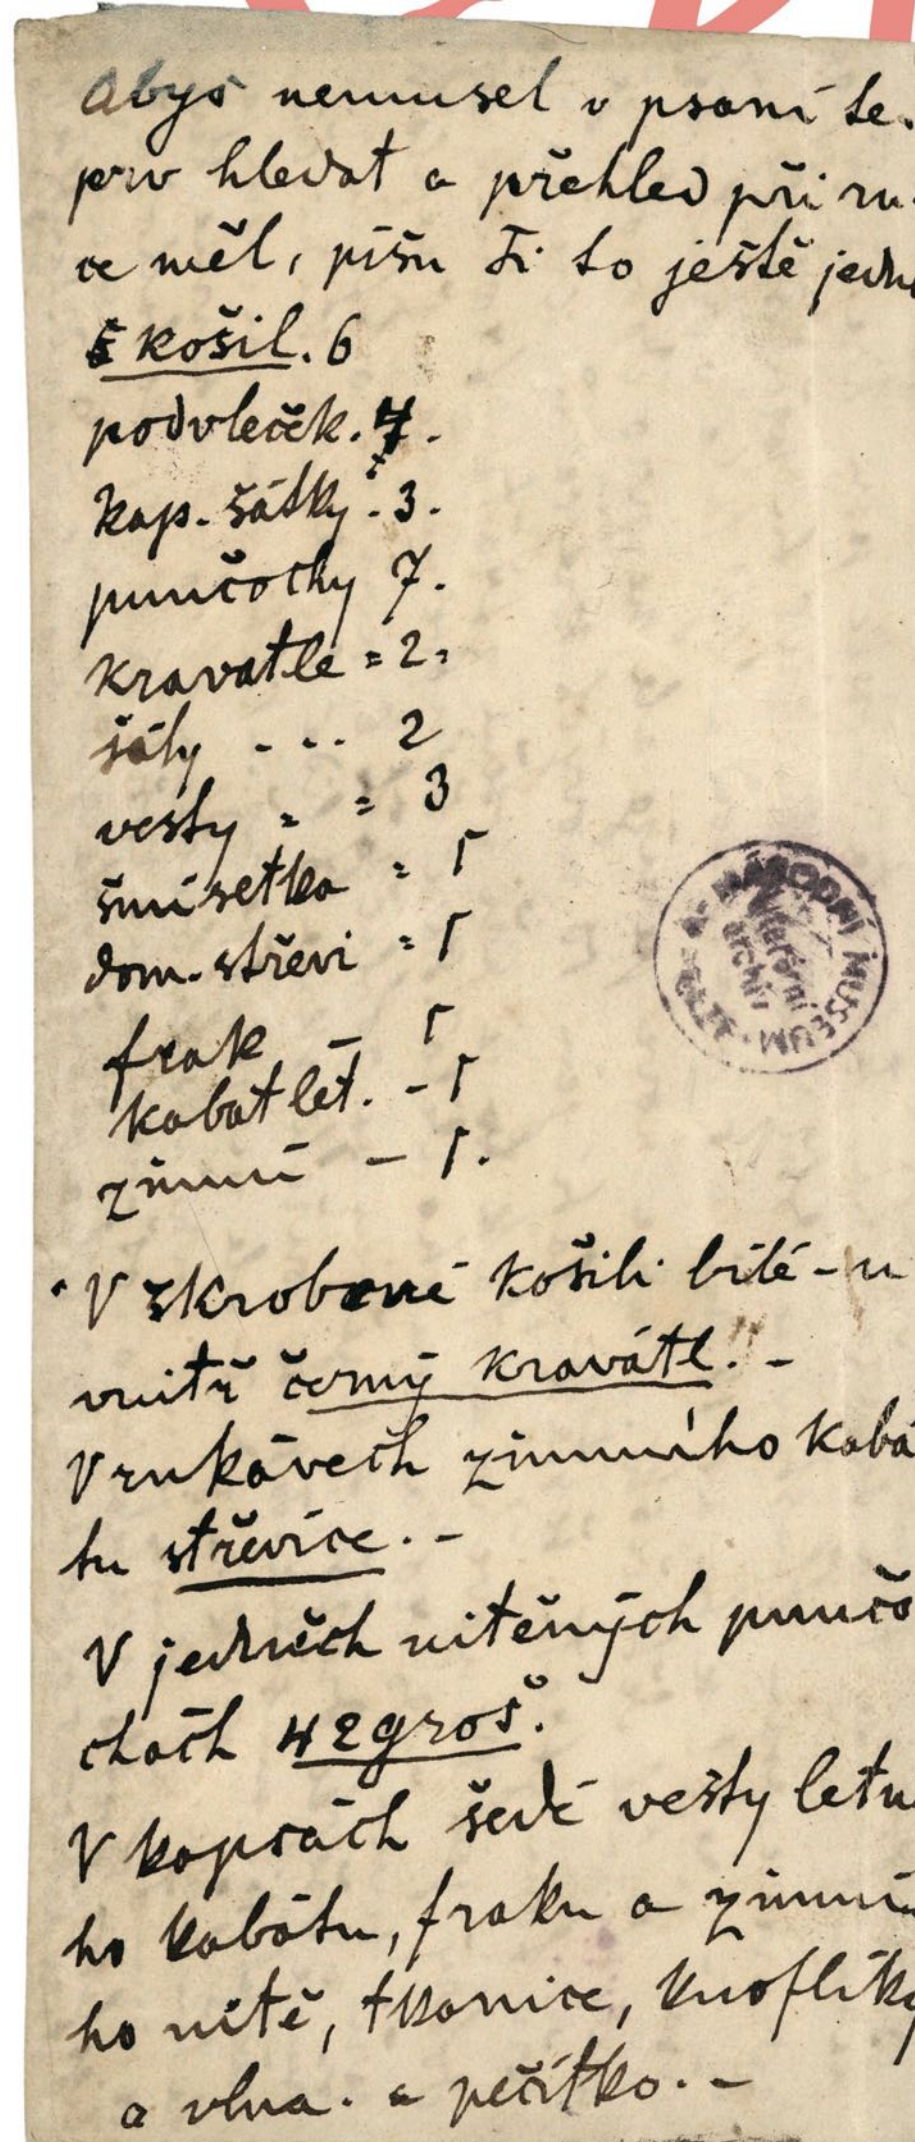 Abys nemusel v psaní te-
prv hledat a přehled při ru-
ce měl, píšu Ti to ještě jedn
košil. 6
podvleček. 4.
kap. šátky. 3.
punčochy 7.
kravatle = 2 =
šály - - - 2
vesty = = 3
šmisetka = 1
dom. střevi = 1
frak - 1
kabat let. - 1
zimní - 1.
V škrobené košili bílé - u
vnitř černý kravátl. -
V rukávech zimního kabá
tu střevíce. -
V jedněch nitěných punčo
chách 42 groš.
V kapsách šedé vesty letní
ho kabátu, fraku a zimní
ho nitě, tkanice, knoflíky
a vlna. a pečítko. -
NÁRODNÍ MUSEUM
Literární
archiv